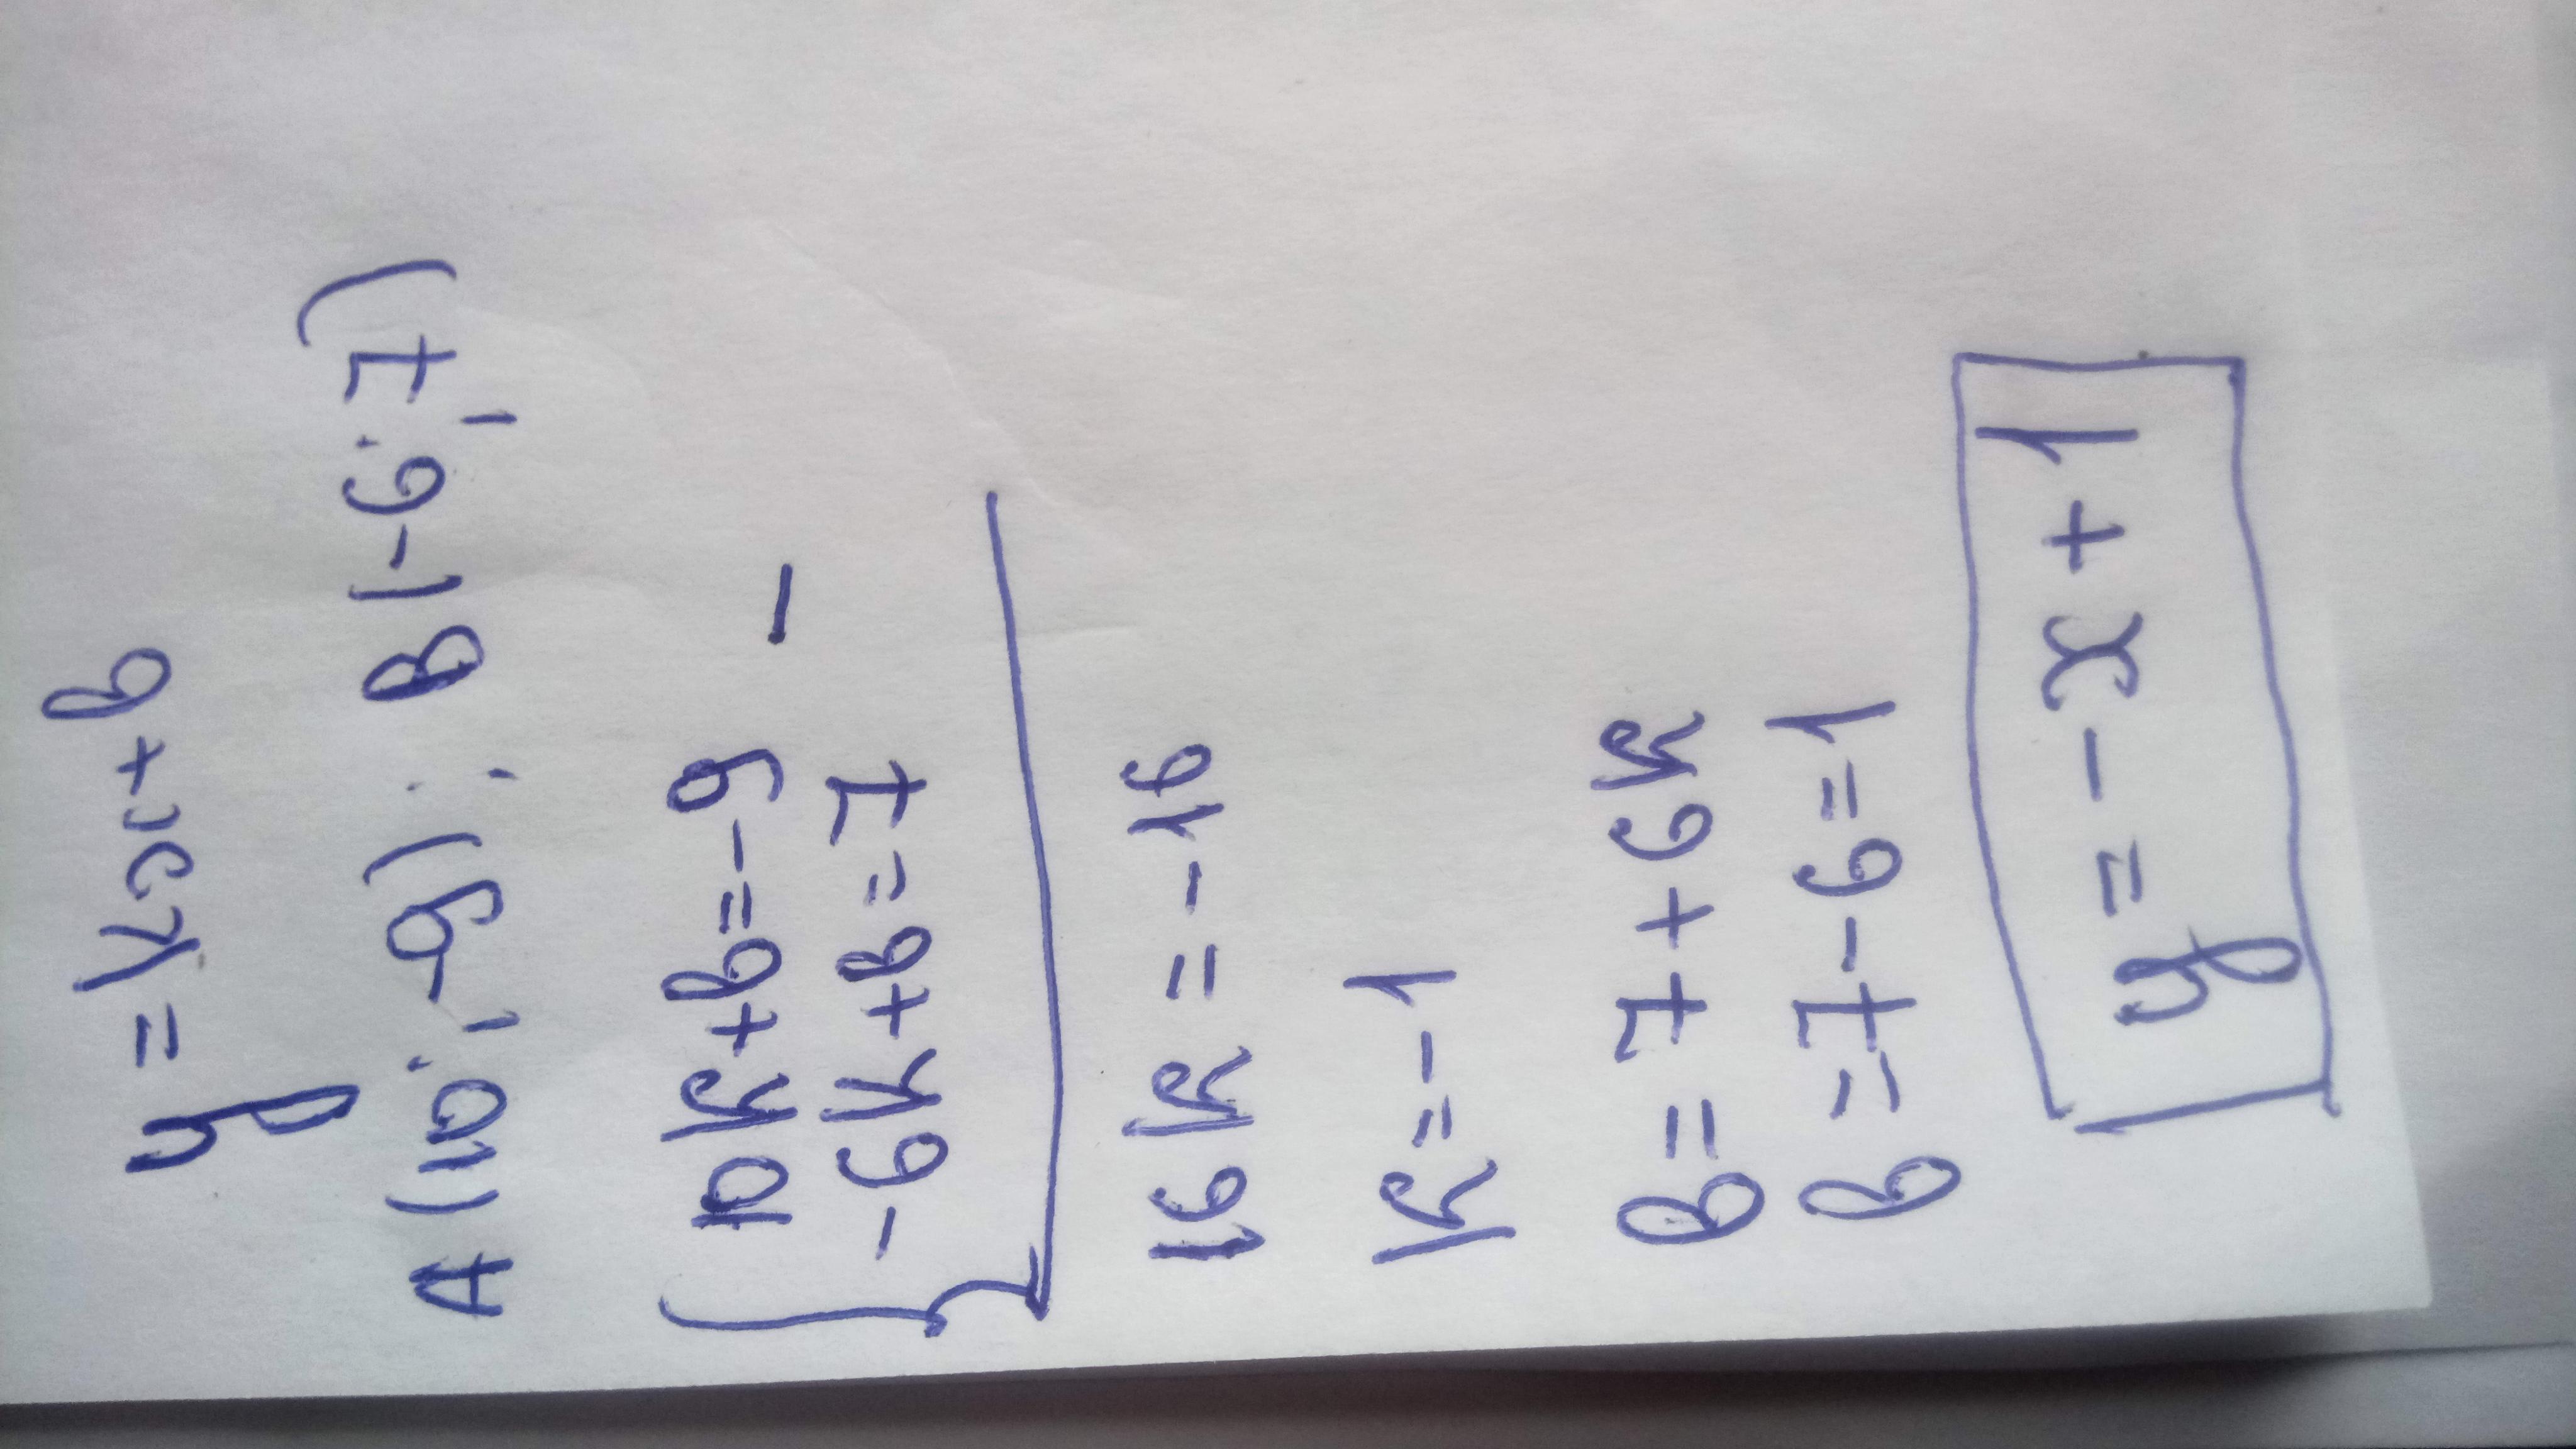 y = kx + b
A (10; -9); B (-6; 7)
10k + b = -9 -
-6k + b = 7
16k = -16
k = -1
b = 7 + 6k
b = 7 - 6 = 1
y = - x + 1